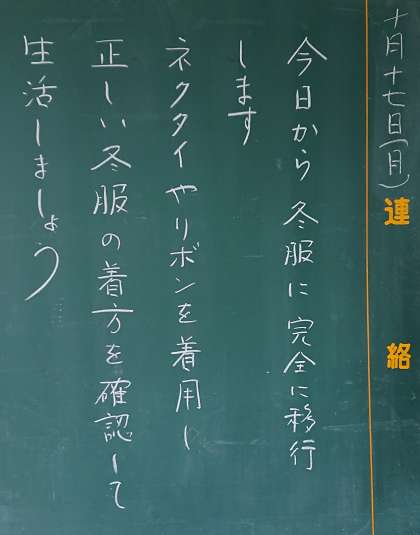 十月十七日(月)
連絡
今日から冬服に完全に移行
します
ネクタイやリボンを着用し
正しい冬服の着方を確認して
生活しましょう